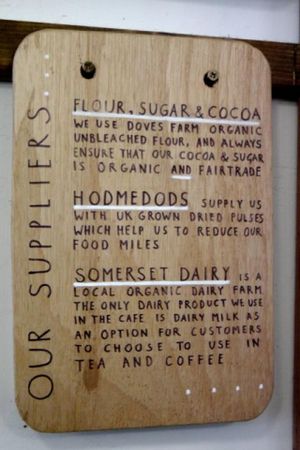 OUR SUPPLIERS...
FLOUR, SUGAR & COCOA
WE USE DOVES FARM ORGANIC
UNBLEACHED FLOUR, AND ALWAYS
ENSURE THAT OUR COCOA & SUGAR
IS ORGANIC AND FAIRTRADE
HODMEDODS SUPPLY US
WITH UK GROWN DRIED PULSES
WHICH HELP US TO REDUCE OUR
FOOD MILES
SOMERSET DAIRY IS A
LOCAL ORGANIC DAIRY FARM
THE ONLY DAIRY PRODUCT WE USE
IN THE CAFE IS DAIRY MILK AS
AN OPTION FOR CUSTOMERS
TO CHOOSE TO USE IN
TEA AND COFFEE